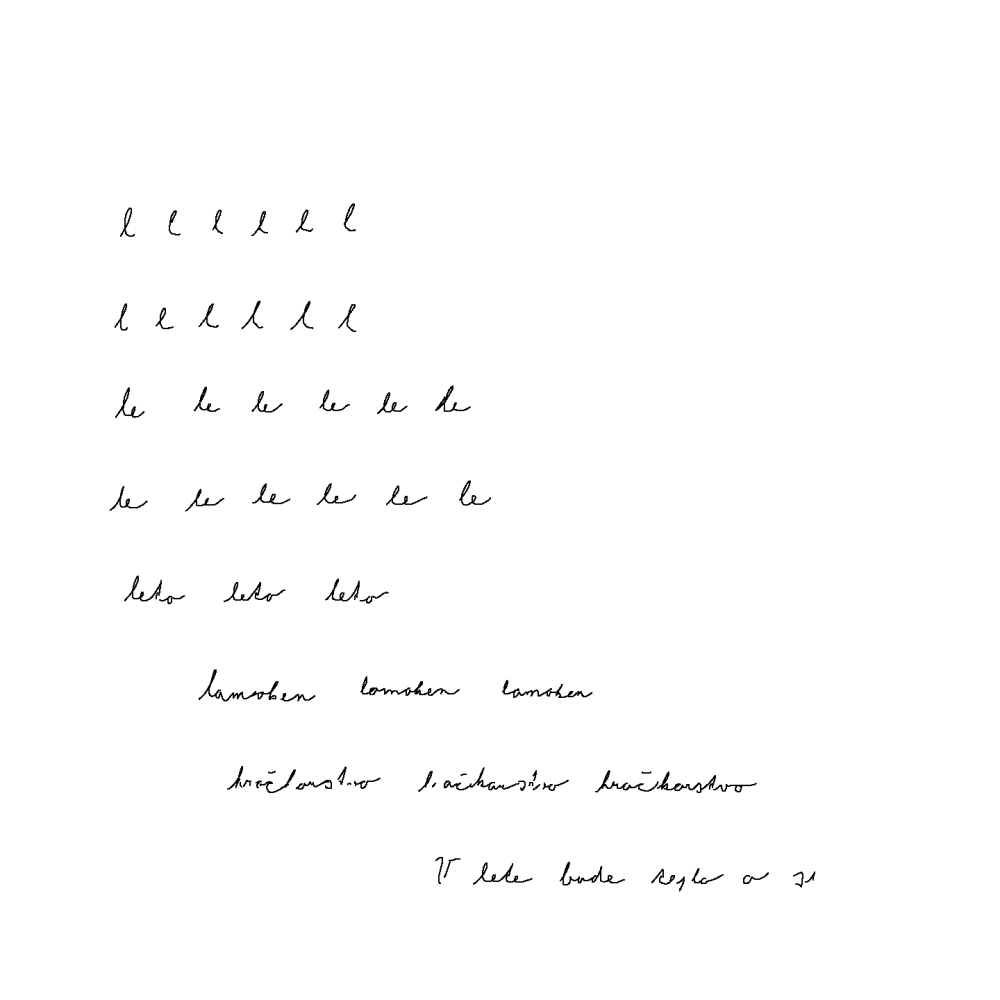 l l l l l l
l l l l l l
le le le le le le
le le le le le le
leto leto leto
lamohen lomohen lamohen
hračkarstvo hračkarstvo hračkarstvo
V lete bude teplo a